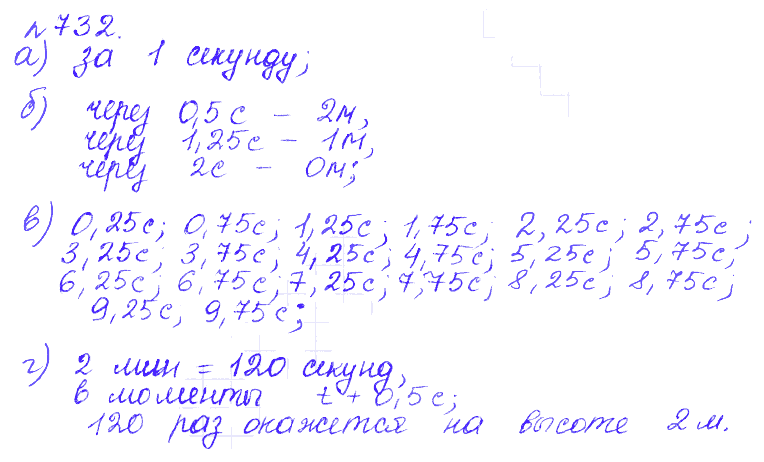 № 732.
а) за 1 секунду;
б) через 0,5 с – 2м,
через 1,25с – 1м,
через 2с – 0м;
в) 0,25с; 0,75с; 1,25с; 1,75с; 2,25с; 2,75с;
3,25с; 3,75с; 4,25с; 4,75с; 5,25с; 5,75с;
6,25с; 6,75с; 7,25с; 7,75с; 8,25с; 8,75с;
9,25с, 9,75с;
г) 2 мин = 120 секунд,
в моменты t + 0,5с;
120 раз окажется на высоте 2 м.